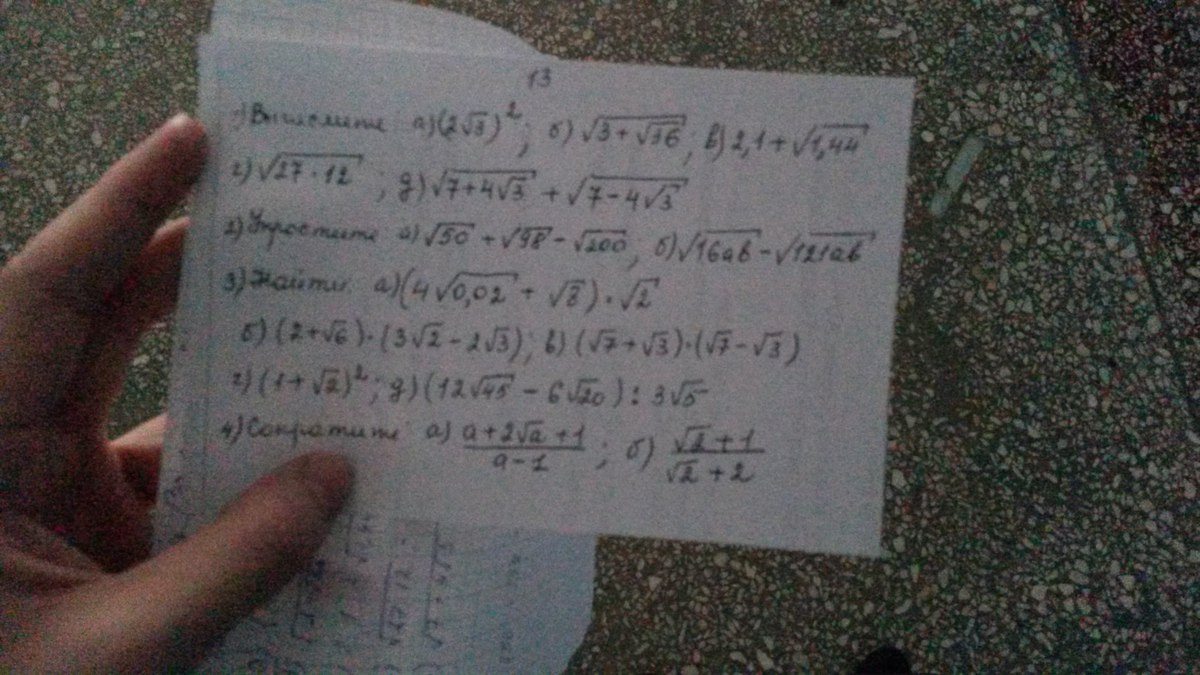 13
1) Вычислите а) (2√3)²; б) √(3 + √36); в) 2,1 + √1,44
г) √(27 · 12) ; д) √(7 + 4√3) + √(7 - 4√3)
2) Упростите а) √50 + √98 - √200, б) √16ab - √121ab
3) Найти а) (4√0,02 + √8) · √2
б) (2 + √6) · (3√2 - 2√3); в) (√7 + √3) · (√7 - √3)
г) (1 + √2)²; д) (12√45 - 6√20) : 3√5
4) Сократите а) (a + 2√a + 1)/(a - 1) ; б) (√2 + 1)/(√2 + 2)